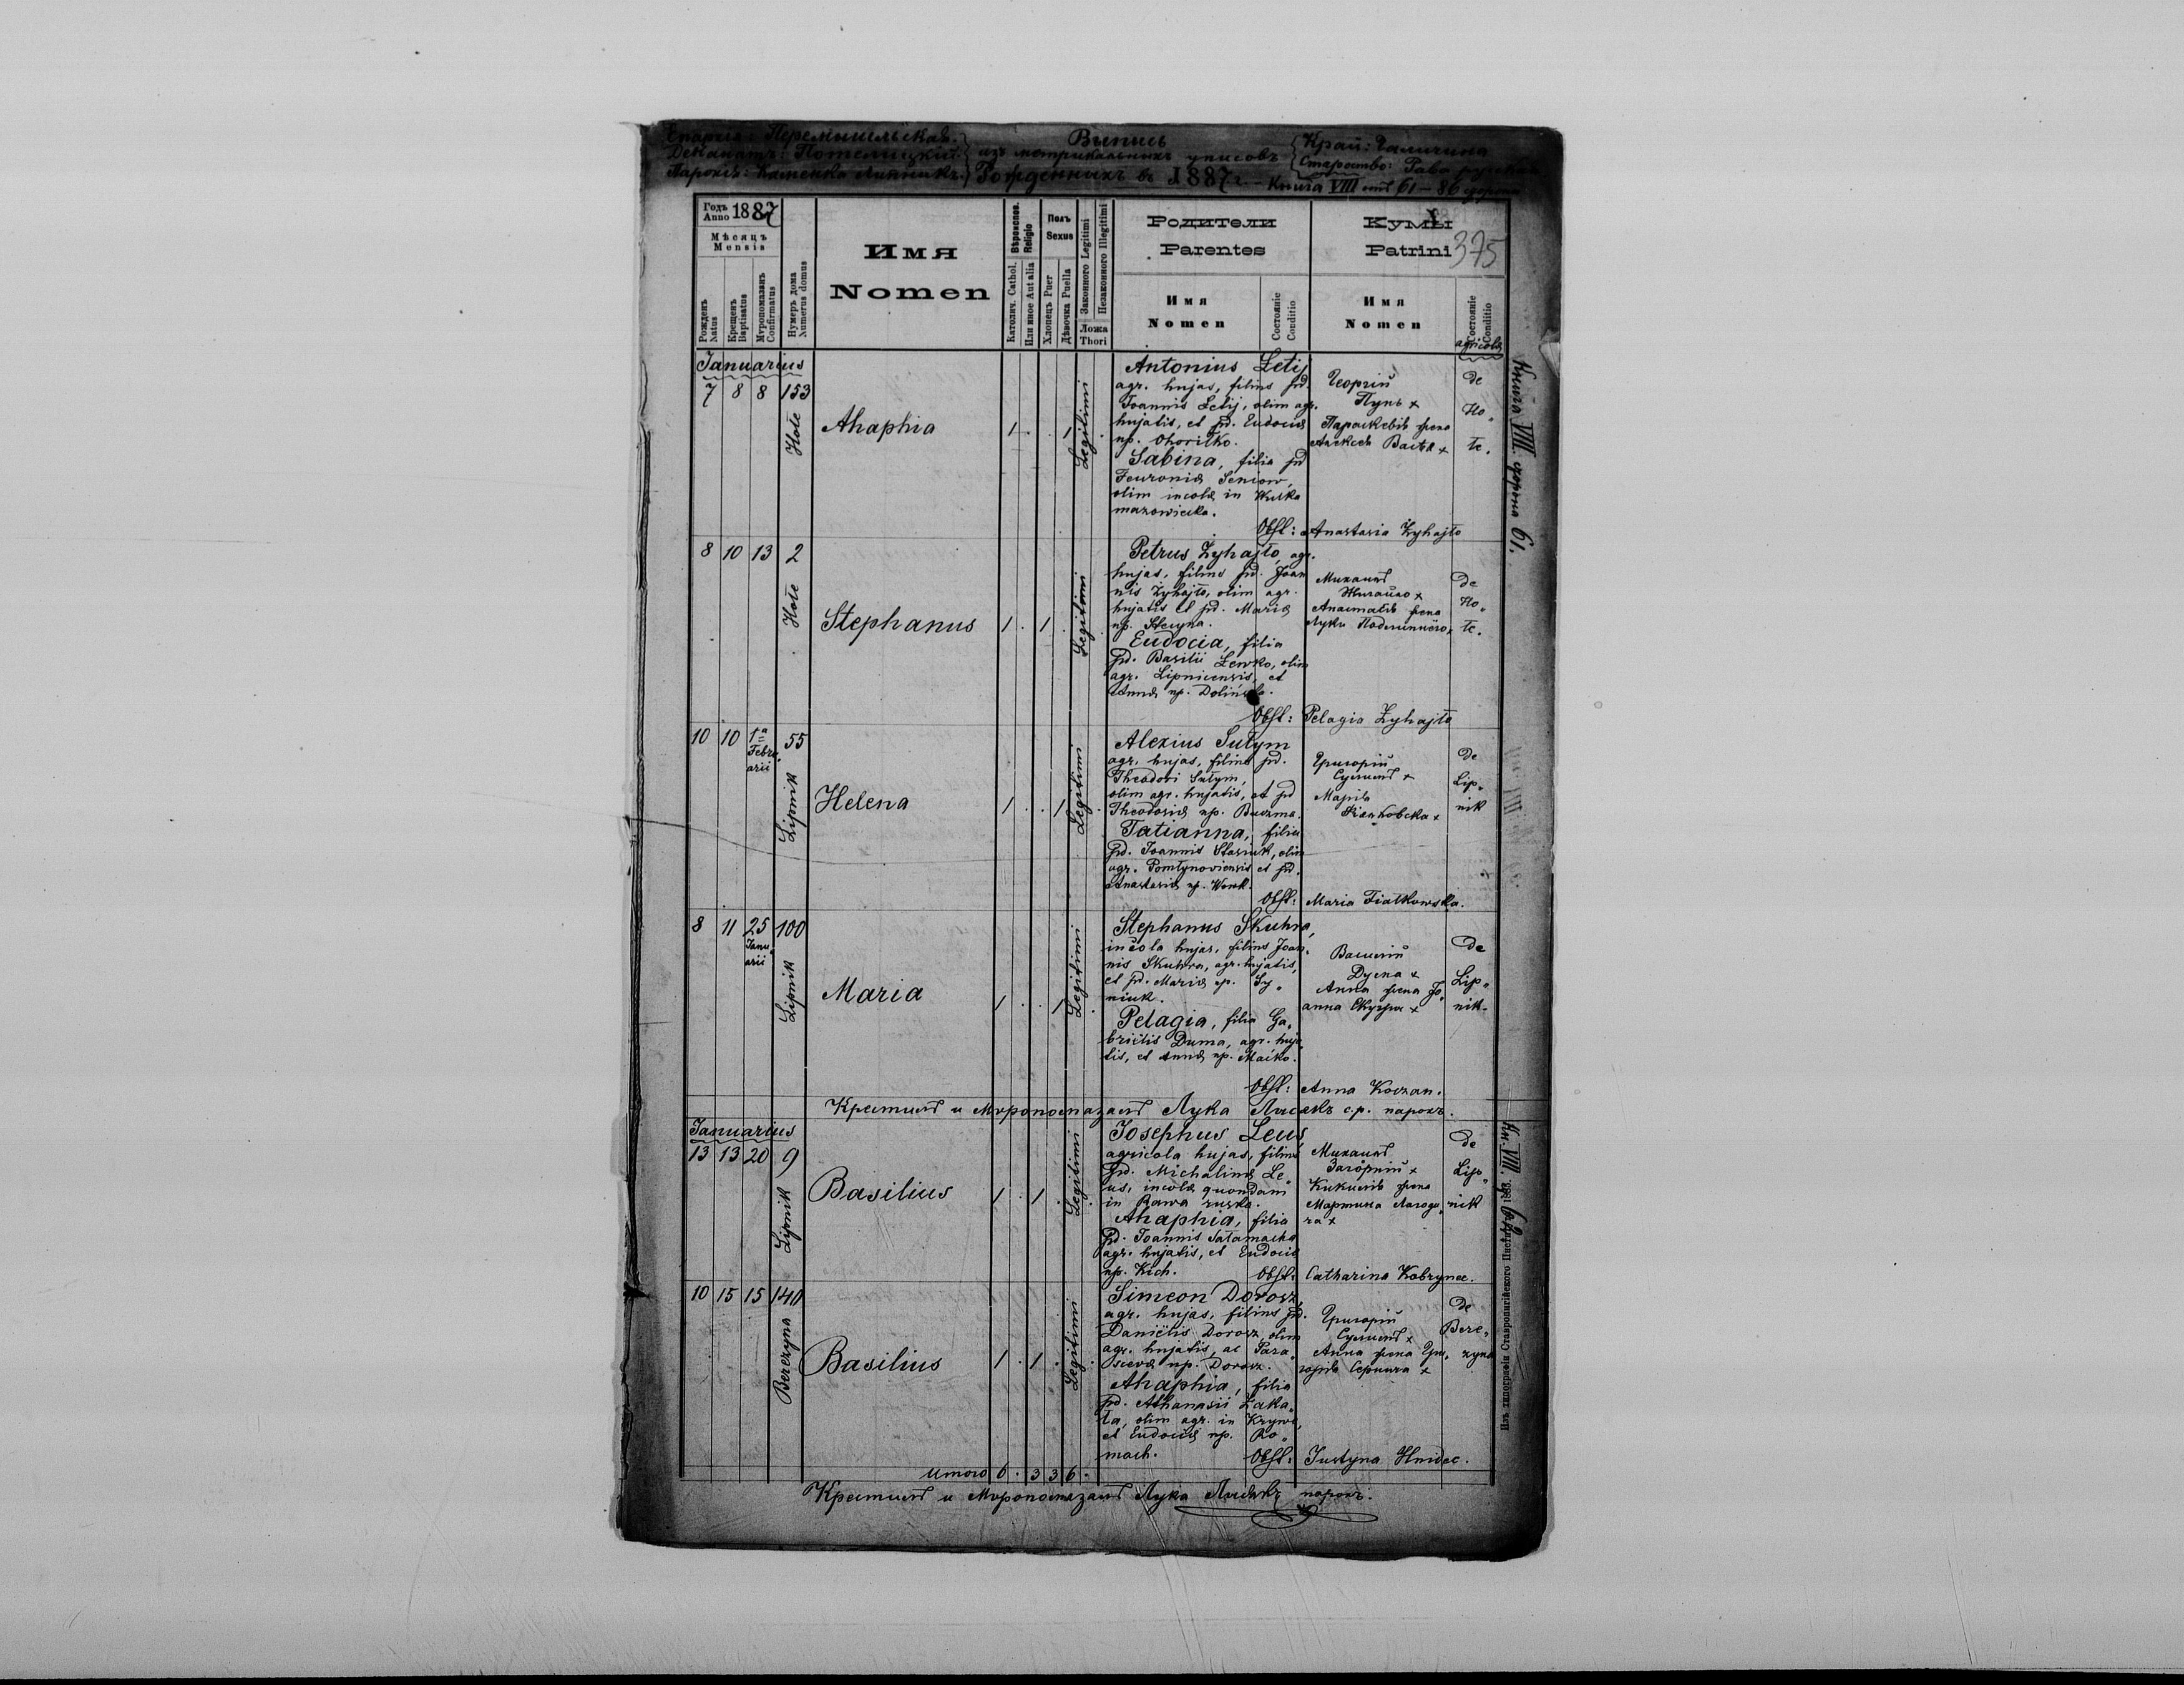 Епархія: Перемышльская.
Деканатъ: Потелицкій.
Парохія: Каменка Липникъ.
Выпись
изъ метрикальныхъ уписовъ
Рожденныхъ въ 1887 г. — Книга VIII отъ 61 — 86
Край: Галичина
Староство: Рава русская
Годъ
Anno 1887
Мѣсяцъ
Mensis
Рожденъ
Natus
Крещенъ
Baptisatus
Мѵропомазанъ
Confirmatus
Нумеръ дома
Numerus domus
Имя
Nomen
Вѣроиспов.
Religio
Католич. Cathol.
Или иное Aut alia
Полъ
Sexus
Хлопецъ Puer
Дѣвочка Puella
Законного Legitimi
Незаконного Illegitimi
Ложа
Thori
Родители
Parentes
Имя
Nomen
Состояніе
Conditio
Кумы
Patrini
375
Имя
Nomen
Состояніе
Conditio
agricolae
Januarius
7 8 8 153
Hołe
Ahaphia
1 . . 1
Legitimi
Antonius Letij
agr. hujas, filius pd.
Joannis Letij, olim agr.
hujatis, et pd. Eudociae
np. Ohoriłko.
Sabina, filia pd
Feuroniae Seniow,
olim incolae in Kulka
mazowiecka.
Георгій
Пупъ +
Параскевія жена
Алексея +
de
Ho„
łe.
Obst: Anastasia Żyhajło
Книга VIII. сторона 61.
8 10 13 2
Hołe
Stephanus
1 . 1 .
Legitimi
Petrus Żyhajło, agr.
hujas, filius pd. Joan
nis Żyhajło, olim agr.
hujatis et pd. Mariae
np.
Eudocia, filia
pd. Basilii Lewko, olim
agr. Lipnicensis, et
Annae np.
Михаилъ
Жигайло +
Анастасія жена
Луки
de
Ho„
łe.
Obst: Pelagia Żyhajło
10 10 1a
Febru„
arii
55
Lipnik
Helena
1 . . 1
Legitimi
Alexius Sułym
agr. hujas, filius pd.
Theodori Sułym,
olim agr. hujatis, et pd
Theodosiae np. Buczma.
Tatianna, filia
pd. Joannis Stasiuk, olim
agr. Pomłynoviensis et pd.
Anastasiae np. Wowk.
Григорій
Сулимъ +
Марія
Фіалковска +
de
Lip„
nik
Obst: Maria Fiałkowska.
8 11 25
Janu„
arii
100
Lipnik
Maria
1 . . 1
Legitimi
Stephanus Skuhra,
incola hujas, filius Joan„
nis Skuhra, agr. hujatis,
et pd. Mariae np. Sy„
niuk.
Pelagia, filia Ga„
briëlis Duma, agr. huja„
tis, et Annae np. Maiko.
Василій
Дума +
Анна жена Jo„
анна Скугра +
de
Lip„
nik.
Obst: Anna Koczan.
Крестилъ и Мѵропомазалъ Лука Лисакъ с.р. парохъ.
Januarius
13 13 20 9
Lipnik
Basilius
1 . 1 .
Legitimi
Josephus Leus,
agricola hujas, filius
pd. Michalinae Le„
us, incolae quondam
in Rawa ruska.
Ahaphia, filia
pd. Joannis Sałamacha
agr. hujatis, et Eudociae
np. Kich.
Михаилъ
Загорній +
жена
Мартина Лагода„
ча +
de
Lip„
nik
Obst: Catharina Kobrynec.
Кн. VIII.
10 15 15 140
Berezyna
Basilius
1 . 1 .
Legitimi
Simeon Dorosz,
agr. hujas, filius pd.
Daniëlis Dorosz, olim
agr. hujatis, ac Para„
sceviae np. Dorosz.
Ahaphia, filia
pd. Athanasii Zaka„
ła, olim agr. in Krywe,
et Eudociae np. Ro„
mach.
Григорій
Сулимъ +
Анна жена Гри„
горія +
de
Bere„
zyna
Obst: Justyna Hnidec.
Итого 6 . 3 3 6 .
Крестилъ и Мѵропомазалъ Лука Лисакъ парохъ.
Изъ типографіи Ставропигійского Инстит. 1883.